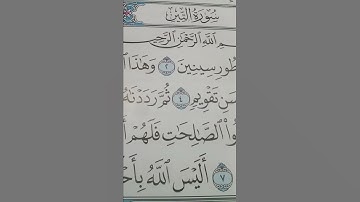 سُورَةُ التِّينِ
ٱللَّهِ ٱلرَّحْمَٰنِ ٱلرَّحِيمِ
طُورِ سِينِينَ ٢ وَهَٰذَا
تَقْوِيمٍ ٤ ثُمَّ رَدَدْنَٰهُ
ٱلصَّٰلِحَٰتِ فَلَهُمْ
٧ أَلَيْسَ ٱللَّهُ